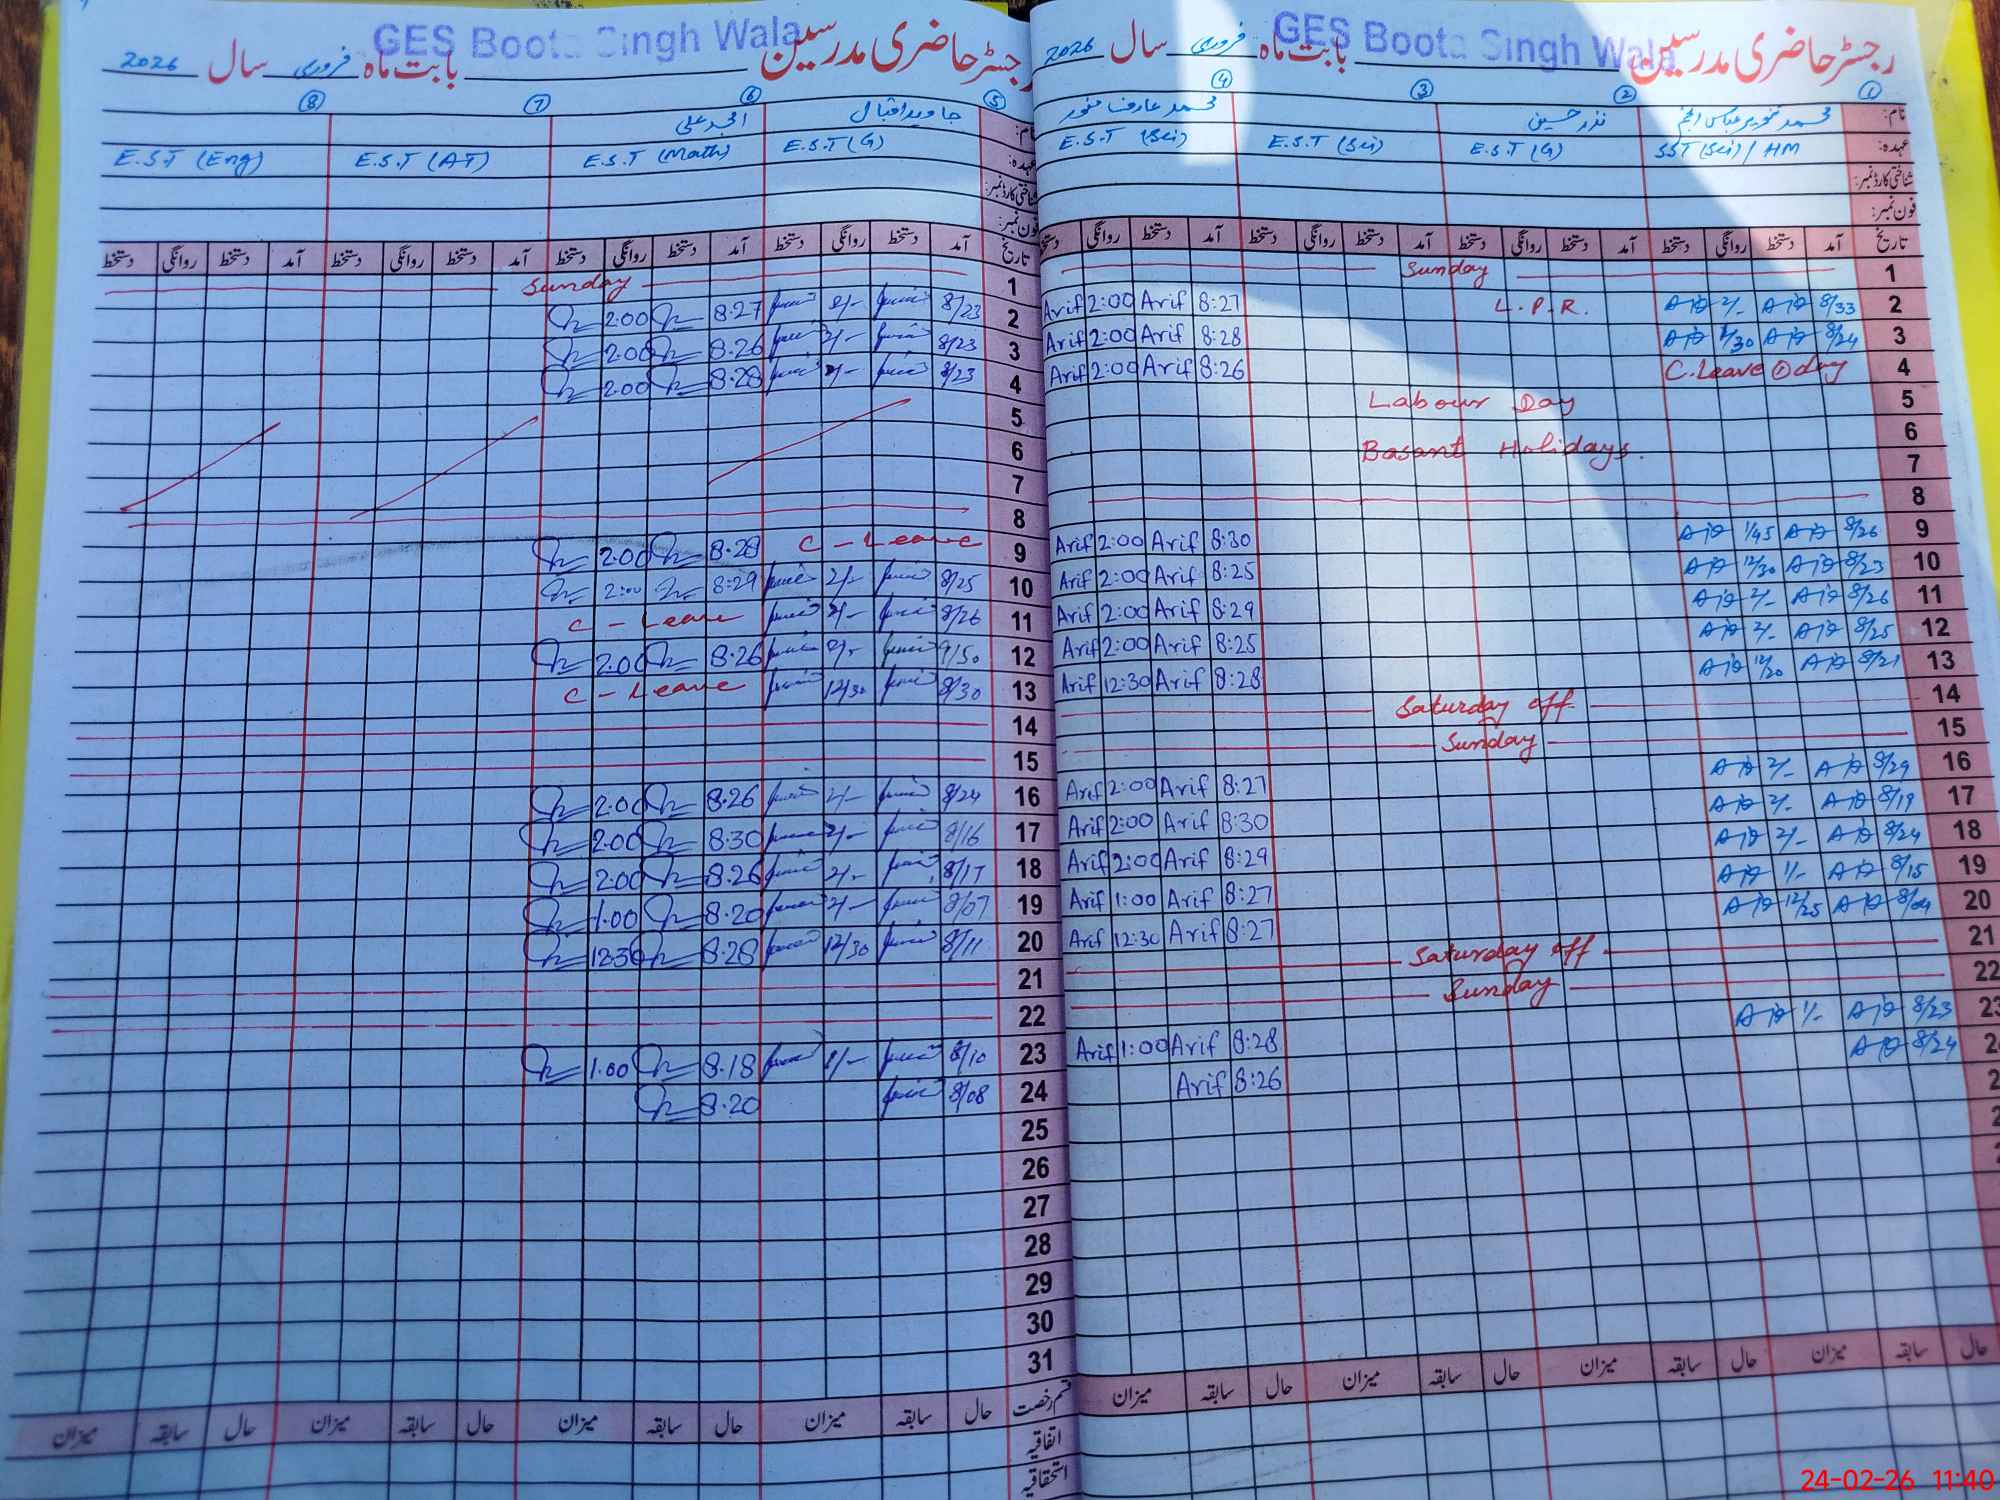 GES Boota Singh Wala
رجسٹر حاضری مدرسین بابت ماہ فروری سال 2026
① ② ③ ④
نام: محمد تنویر عباس انجم نذر حسین محمد عارف منور
عہدہ: SST (Sci) / HM E.S.T (G) E.S.T (Sci) E.S.T (Sci)
شناختی کارڈ نمبر:
فون نمبر:
تاریخ آمد دستخط روانگی دستخط آمد دستخط روانگی دستخط آمد دستخط روانگی دستخط آمد دستخط روانگی دستخط
1 Sunday
2 8/33 2/- L.P.R. 8:27 Arif 2:00 Arif
3 8/24 1/30 8:28 Arif 2:00 Arif
4 C.Leave ① day 8:26 Arif 2:00 Arif
5 Labour Day
6 Basant Holidays.
7
8
9 8/26 1/45 8:30 Arif 2:00 Arif
10 8/23 12/20 8:25 Arif 2:00 Arif
11 8/26 2/- 8:29 Arif 2:00 Arif
12 8/25 2/- 8:25 Arif 2:00 Arif
13 8/21 12/20 8:28 Arif 12:30 Arif
14 Saturday off
15 Sunday
16 8/29 2/- 8:27 Arif 2:00 Arif
17 8/19 2/- 8:30 Arif 2:00 Arif
18 8/24 2/- 8:29 Arif 2:00 Arif
19 8/15 1/- 8:27 Arif 1:00 Arif
20 8/04 12/25 8:27 Arif 12:30 Arif
21 Saturday off
22 Sunday
23 8/23 1/- 8:28 Arif 1:00 Arif
8/24 8:26 Arif
حال سابقہ میزان حال سابقہ میزان حال سابقہ میزان حال سابقہ میزان
GES Boota Singh Wala
رجسٹر حاضری مدرسین بابت ماہ فروری سال 2026
⑤ ⑥ ⑦ ⑧
نام: جاوید اقبال امجد علی
عہدہ: E.S.T (G) E.S.T (Math) E.S.T (AT) E.S.T (Eng)
شناختی کارڈ نمبر:
فون نمبر:
تاریخ آمد دستخط روانگی دستخط آمد دستخط روانگی دستخط آمد دستخط روانگی دستخط آمد دستخط روانگی دستخط
1 Sunday
2 8/23 2/- 8.27 2.00
3 8/23 2/- 8.26 2.00
4 8/23 2/- 8.28 2.00
5
6
7
8
9 C - Leave 8.28 2.00
10 8/25 2/- 8:29 2:00
11 8/26 2/- C - Leave
12 9/50 2/- 8.26 2.00
13 8/30 12/30 C - Leave
14
15
16 8/24 2/- 8.26 2.00
17 8/16 2/- 8.30 2.00
18 8/17 2/- 8.26 2.00
19 8/07 2/- 8.20 1.00
20 8/11 12/30 8.28 12.30
21
22
23 8/10 1/- 8.18 1.00
24 8/08 8.20
25
26
27
28
29
30
31
قسم رخصت حال سابقہ میزان حال سابقہ میزان حال سابقہ میزان حال سابقہ میزان
اتفاقیہ
استحقاقیہ
24-02-26 11:40